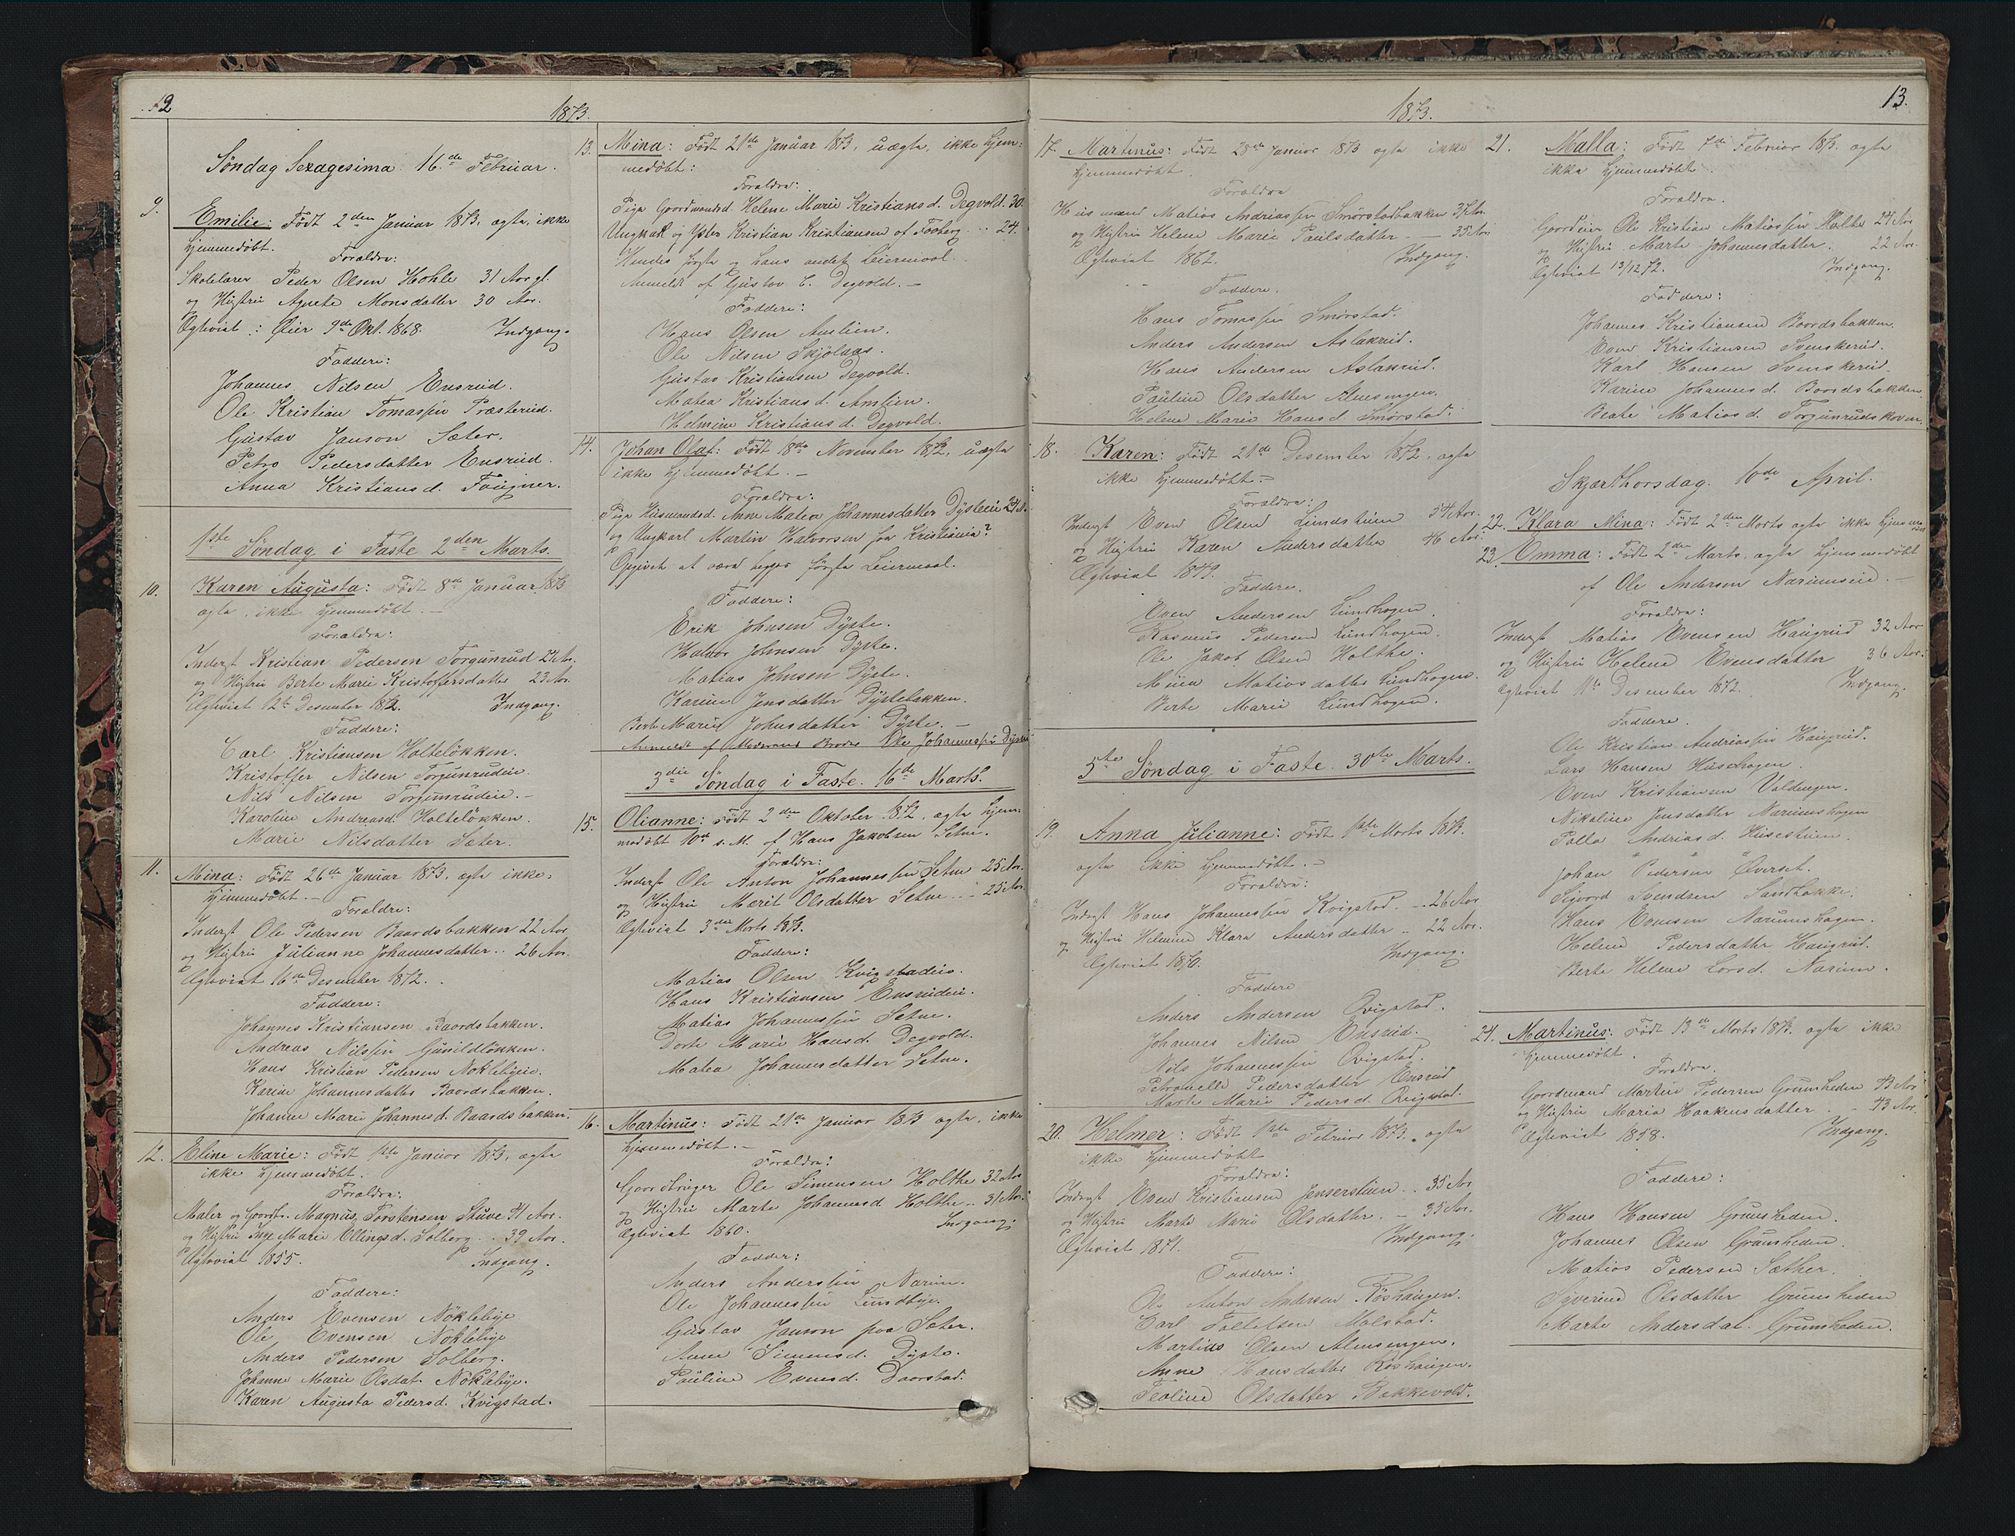 12
1873.
Søndag Sexagesima 16de Februar.
9. Emilie: Født 2den Januar 1873, ægte, ikke
hjemmedøbt.
Foraldre:
Skolelærer Peder Olsen Hohle 31 Aar gl.
og Hustru Agnete Monsdatter 30 Aar.
Ægteviet: Øier 9de Okt. 1868. Indgang.
Faddere:
Johannes Nilsen Ensrud.
Ole Kristian Tomassen Præsterud.
Gustav Janson Sæter.
Petro Pedersdatter Ensrud.
Anna Kristiansd. Faugner.
1ste Søndag i Faste 2den Marts.
10. Karen Augusta: Født 8de Januar 1873
ægte, ikke hjemmedøbt.
Foraldre:
Inderst Kristian Pedersen Torgunrud 24 Aar.
og Hustru Berte Marie Kristoffersdatter 23 Aar.
Ægteviet 12te Desember 1872. Indgang.
Faddere:
Carl Kristiansen Holteløkken.
Kristoffer Nilsen Torgunrudeie.
Nils Nilsen Torgunrudeie.
Karoline Andreasd. Holteløkken.
Marie Nilsdatter Sæter.
11. Mina: Født 26de Januar 1873, ægte ikke
hjemmedøbt.
Foraldre:
Inderst Ole Pedersen Baardsbakken 22 Aar
og Hustru Julianne Johannesdatter 26 Aar.
Ægteviet 16de Desember 1872.
Faddere:
Johannes Kristiansen Baardsbakken.
Andreas Nilssen Gunildløkken.
Hans Kristian Pedersen Nøklebyeie.
Karine Johannesdatter Baardsbakken.
Johanne Marie Johannesd. Baardsbakken.
12. Eline Marie: Født 1ste Januar 1873, ægte
ikke hjemmedøbt.
Foraldre:
Maler og Magnus Torstensen Stuve 41 Aar.
og Hustru Inge Marie Ellingsd. Solberg 39 Aar.
Ægteviet 1855. Indgang.
Faddere:
Anders Evensen Nøklebye
Ole Evensen Nøklebye
Anders Pedersen Solberg.
Johanne Marie Olsdat. Nøklebye.
Karen Augusta Pedersd. Kvigstad.
13. Mina: Født 21de Januar 1873, uægte, ikke hjem-
medøbt:
Foraldre:
Pige Gaardmandsd. Helene Marie Kristiansd. Degvold. 30.
Ungkarl og Kristian Kristiansen af 24.
Hendes første og hans andet Leiermaal.
Anmeldt af Gustav C. Degvold.
Faddere:
Hans Olsen Amlien.
Ole Nilsen Skjølaas.
Gustav Kristiansen Degvold.
Matea Kristiansd. Amlien.
Helmine Kristiansd. Degvold.
14. Johan Olaf: Født 18de November 1872, uægte
ikke hjemmedøbt.
Foraldre:
Pige Husmandsd. Anne Matea Johannesdatter Dysteeie 24
og Ungkarl Martin Halvorsen fra Kristiania?
Opgivet at være begges første Leiermaal.
Faddere:
Erik Johnsen Dyste.
Halvor Johnsen Dyste.
Matias Johnsen Dyste.
Karine Jensdatter Dystebakken.
Berte Marie Johnsdatter Dyste.
Anmeldt af Moderens Broder Ole Johannessen Dyste
3die Søndag i Faste 16de Marts.
15. Olianne: Født 2den Oktober 1872, ægte hjem-
medøbt 10de s. M. af Hans Jakobsen Setne.
Foraldre:
Inderst Ole Anton Johannessen Setne 25 Aar.
og Hustru Marit Olsdatter Setne 25 Aar.
Ægteviet 3die Marts 1873.
Faddere:
Matias Olsen Kvigstadeie.
Hans Kristiansen Ensrudeie.
Matias Johannessen Setne.
Dorte Marie Hansd. Degvold.
Matea Johannesdatter Setne.
16. Martinus: Født 21de Januar 1873 ægte, ikke
hjemmedøbt.
Foraldre:
Gaardbruger Ole Simensen Holthe 32 Aar
og Hustru Marte Johannesd. Holthe 31 Aar.
Ægteviet 1860. Indgang.
Fadder:
Anders Anderssen Narum.
Ole Johannessen Lundbye.
Gustav Janson paa Sæter.
Anne Simensd. Dyste.
Pauline Evensd. Daarstad.
1873.
13.
17. Martinus: Født 28de Januar 1873 ægte ikke
hjemmedøbt.
Foraldre
Husmand Matias Andriassen Smørstadbakken 37 Aar
og Hustru Helene Marie Paulsdatter 35 Aar
Ægteviet 1862. Indgang.
Faddere.
Hans Tomassen Smørstad.
Anders Andersen Aslakrud.
Hans Andersen Aslakrud.
Pauline Olsdatter Almsengen.
Helene Marie Hansd. Smørstad.
18. Karen: Født 21de Desember 1872, ægte
ikke hjemmedøbt.
Foraldre:
Inderst Even Olsen Lundstuen 54 Aar.
og Hustru Karen Andersdatter 46 Aar.
Faddere.
Even Andersen Lundhagen.
Rasmus Pedersen Lundhagen.
Ole Jakob Olsen Holthe.
Mina Matiasdatter Lundhagen.
Berte Marie Lundhagen.
5te Søndag i Faste. 30te Marts.
19. Anna Julianne: Født 1ste Marts 1873.
ægte ikke hjemmedøbt.
Foraldre:
Inderst Hans Johannessen Kvigstad 26 Aar
og Hustru Helmine Klara Andersdatter 22 Aar.
Ægteviet 1870. Indgang.
Faddere
Anders Andersen Qvigstad.
Johannes Nilsen Ensrud.
Nils Johannessen Qvigstad.
Petronelle Pedersdatter Ensrud
Marte Marie Pedersd. Qvigstad.
20. Helmer: Født 1ste Februar 1873, ægte
ikke hjemmedøbt
Foraldre:
Inderst Even Kristiansen Jenserstuen 35 Aar
og Hustru Marte Marie Olsdatter. 35 Aar.
Ægteviet 1871. Indgang.
Faddere:
Ole Anton Andersen Røshaugen.
Carl Molstad.
Martius Olsen Almsengen.
Anne Hansdatter Røshaugen.
Teoline Olsdatter Bakkevold.
21. Malla: Født 7de Februar 1873, ægte
ikke hjemmedøbt.
Foraldre.
Gaardeier Ole Kristian Matiassen Holthe 24 Aar.
og Hustru Marte Johannesdatter. 22 Aar.
Ægteviet 13/12 72. Indgang.
Faddere:
Johannes Kristiansen Baardsbakken.
Even Kristiansen Svenskerud.
Karl Hansen Svenskerud.
Karine Johannesd. Baardsbakken
Beate Matiasd. Torgunrudskoven.
Skjærthorsdag 10de April.
22. Klara Mina: Født 2den Marts ægte ikke hjemmedøbt
23. Emma: Født 2den Marts, ægte hjemmedøbt
af Ole Andersen Narumseie.
Foraldre:
Inderst Matias Evensen Haugrud 32 Aar
og Hustru Helene Evensdatter 36 Aar.
Ægteviet 11te Desember 1872. Indgang.
Faddere.
Ole Kristian Andriassen Haugrud.
Lars Hansen Huschagen.
Even Kristiansen Valdengen.
Nikoline Jensdatter Narumshagen
Polla Andriasd. Husestuen.
Johan Pedersen Øverset.
Sigvard Svendsen Sandbakke.
Hans Evensen Narumshagen.
Helene Pedersdatter Haugrud.
Berte Helene Larsd. Narum.
24. Martinus: Født 13de Marts 1873. ægte ikke
hjemmedøbt.
Foraldre.
Gaardmand Martin Pedersen Grunsheden 43 Aar
og Hustru Maria Haakensdatter. 43 Aar.
Ægteviet 1858. Indgang.
Faddere:
Hans Hansen Grunsheden.
Johannes Olsen Grunsheden.
Matias Pedersen Sæther.
Syverine Olsdatter Grunsheden
Marte Andersdat. Grunsheden.